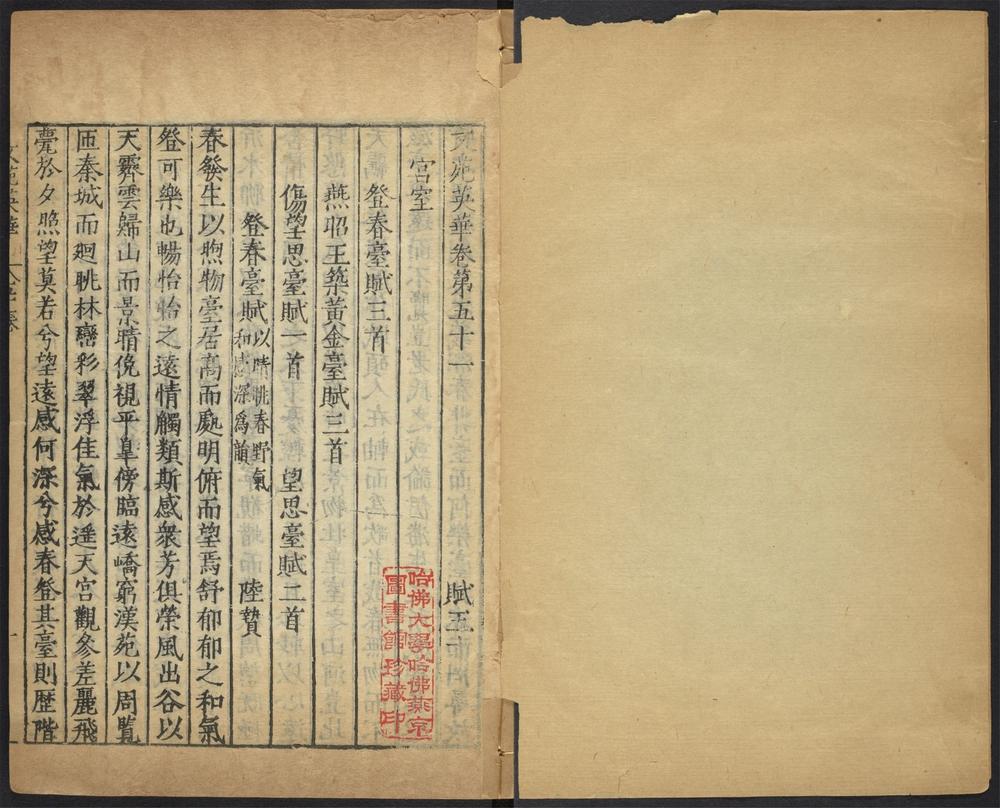 文苑英華卷第五十一 賦五十一
宮室
登春臺賦三首
燕昭王築黃金臺賦三首
傷望思臺賦一首 望思臺賦二首
登春臺賦以晴眺春野氣和感深爲韻 陸贄
春發生以煦物臺居高而處明俯而望焉舒郁郁之和氣
登可樂也暢怡怡之遠情觸類斯感衆芳俱榮風出谷以
天霽雲歸山而景晴俛視平臯傍臨遠嶠窮漢苑以周覧
匝秦城而廻眺林巒彩翠浮佳氣於遥天宮觀參差麗飛
甍於夕照望莫若兮望遠感何深兮感春登其臺則歷階
哈佛大學哈佛燕京
圖書館珍藏印
文苑英華